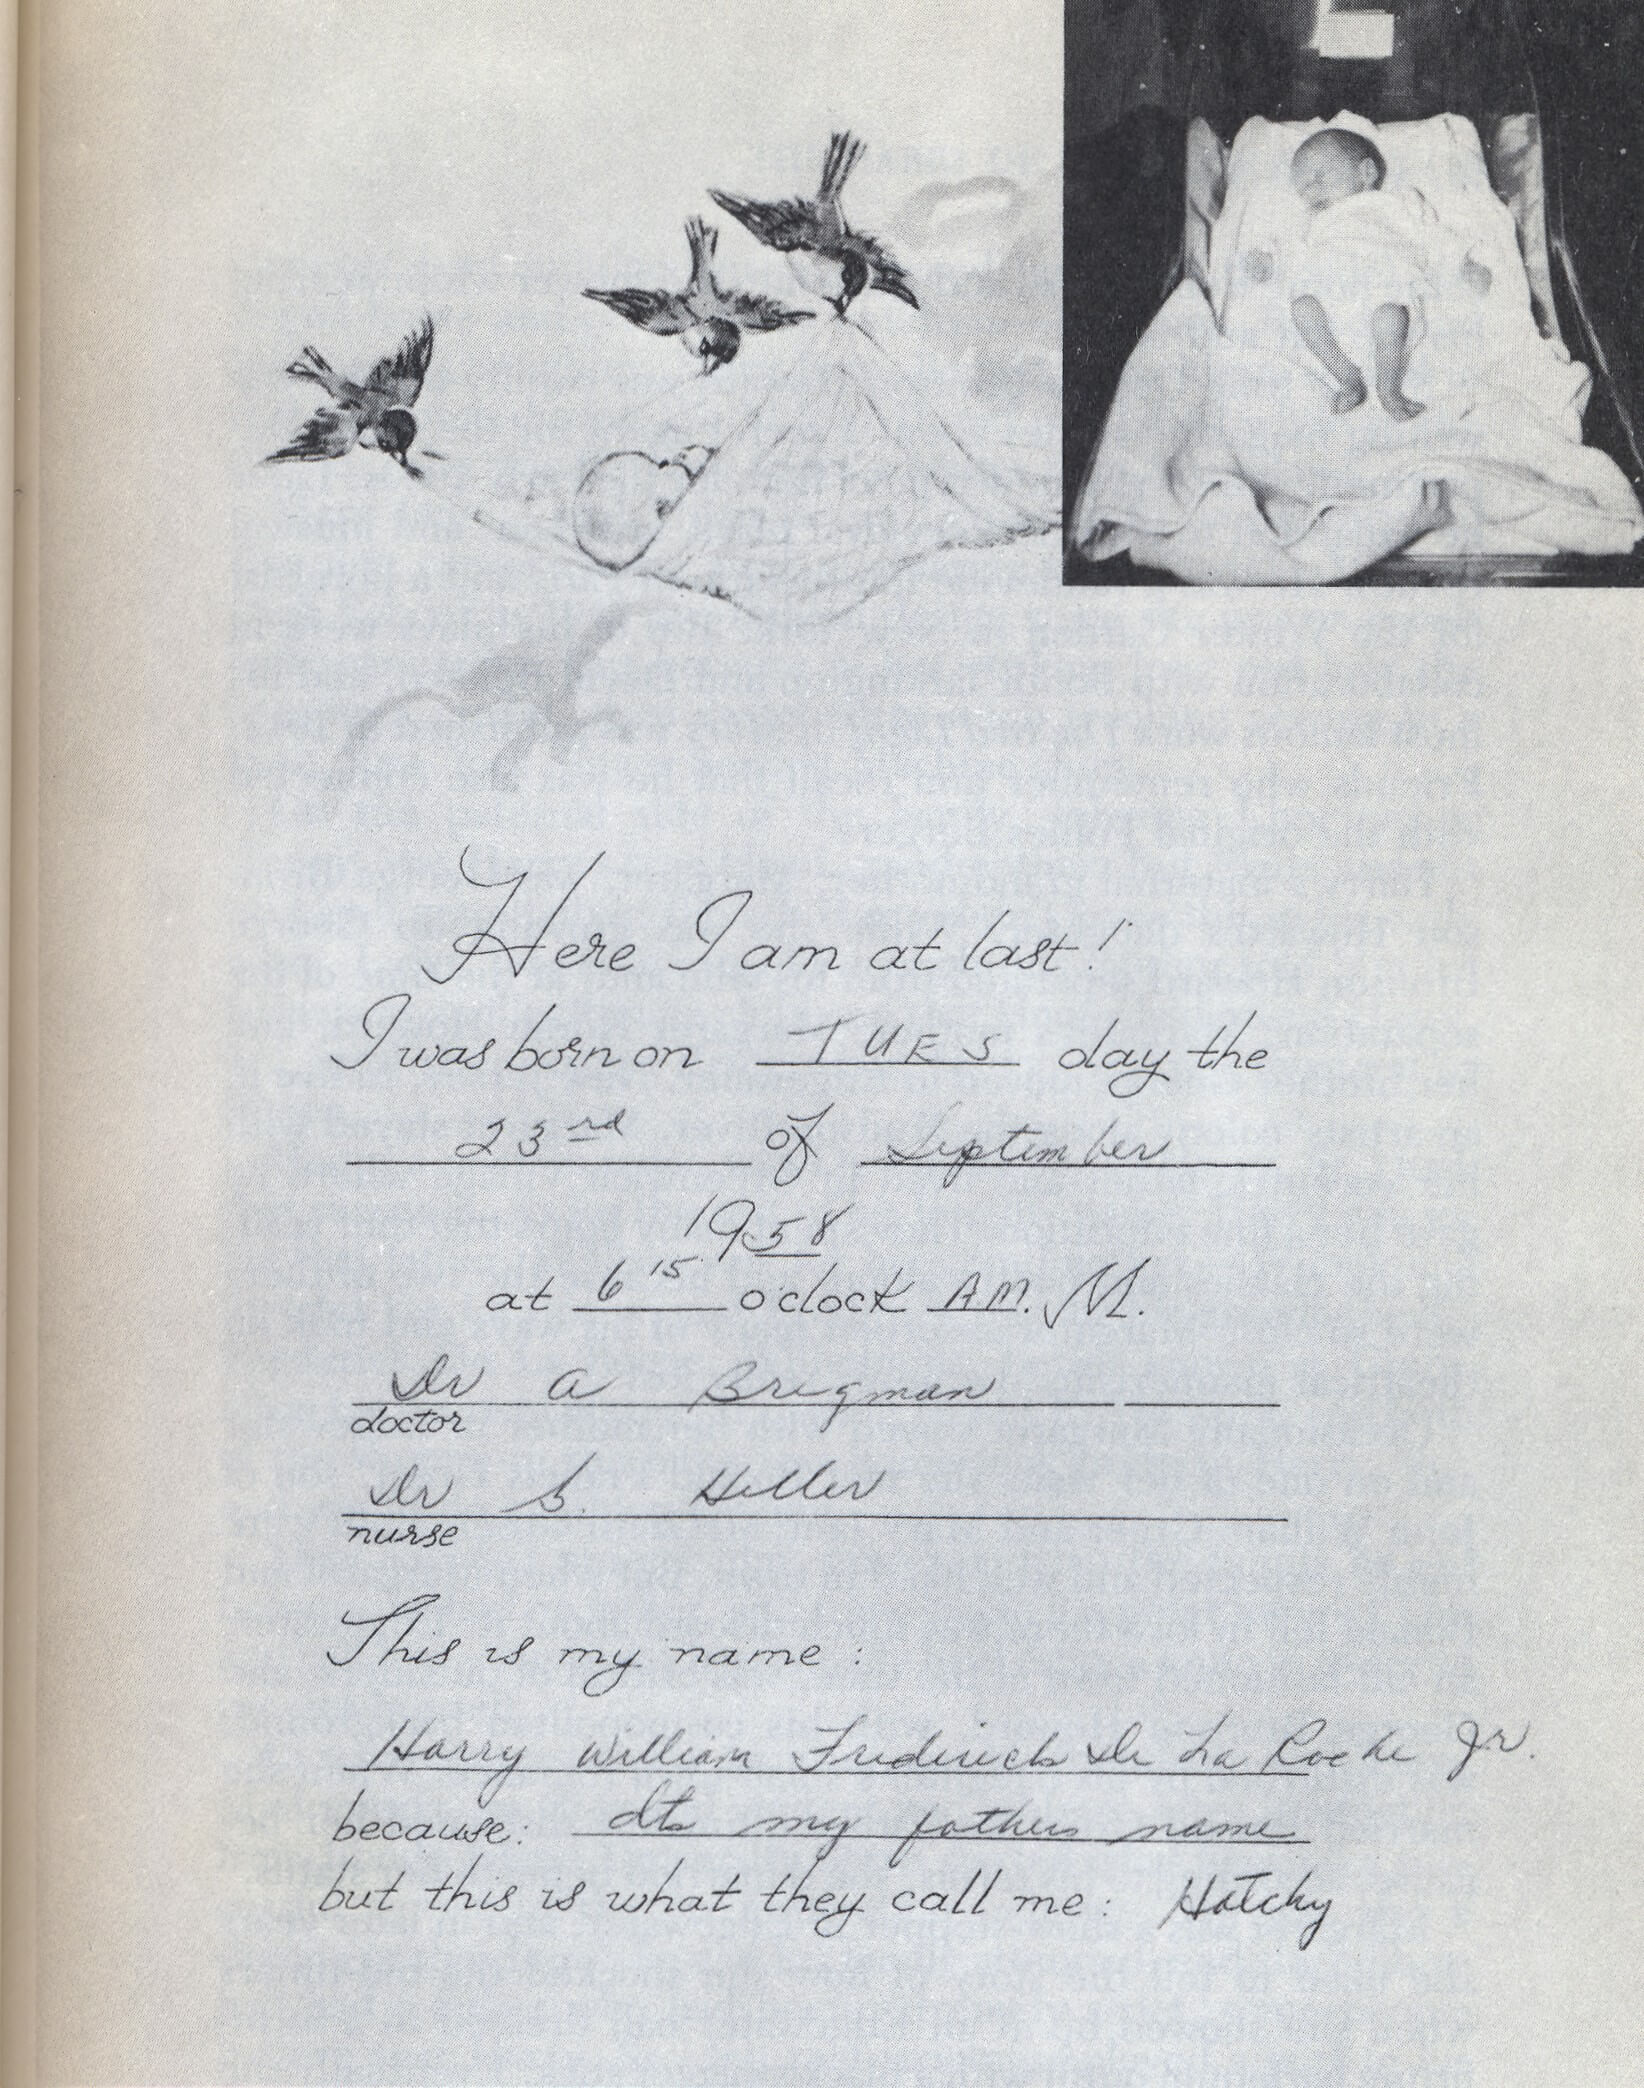 Here I am at last!
I was born on TUES day the
23rd of September
1958
at 6 15 o'clock AM. M.
Dr A Bregman
doctor
Dr S. Heller
nurse
This is my name:
Harry William Frederick De La Roche Jr.
because: Its my fathers name
but this is what they call me: Hatchy